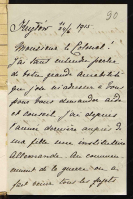 30
1915.
Monsieur le Colonel!
J'ai tant entendu parler
de votre grande amabilité
que je m'adresse à vous
pour vous demander aide
et conseil. J'ai depuis
l'année dernière auprès de
ma fille une institutrice
Allemande. Au commen-
cement de la guerre on a
fait tous les sujets